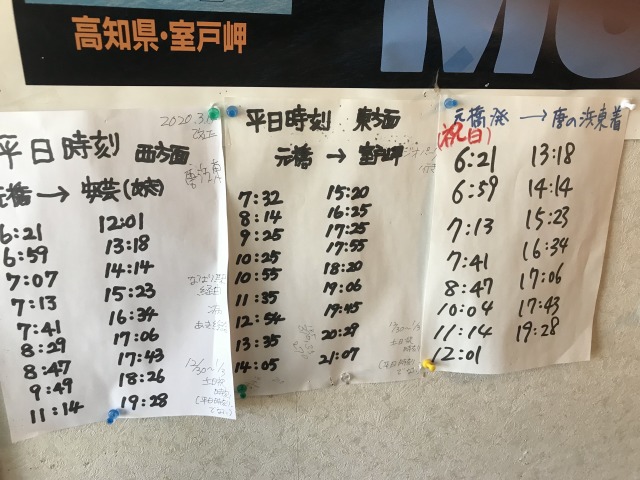 高知県・室戸岬
MU
2020.3.
改正
平日時刻 西方面
元橋 → 安芸(
6:21 12:01
6:59 13:18
7:07 14:14
7:13 15:23
7:41 16:34
8:29 17:06
8:47 17:43
9:49 18:26
11:14 19:28
12/30~1/3
土日祝
時刻
(平日時刻)
でない
平日時刻 東方面
元橋 → 室戸岬
7:32 15:20
8:14 16:25
9:25 17:25
10:25 17:55
10:55 18:20
11:35 19:06
12:54 19:45
13:35 20:28
14:05 21:07
土日祝
時刻
(平日時刻)
でない
元橋発 → 唐の浜東着
(祝日)
6:21 13:18
6:59 14:14
7:13 15:23
7:41 16:34
8:47 17:06
10:04 17:43
11:14 19:28
12:01